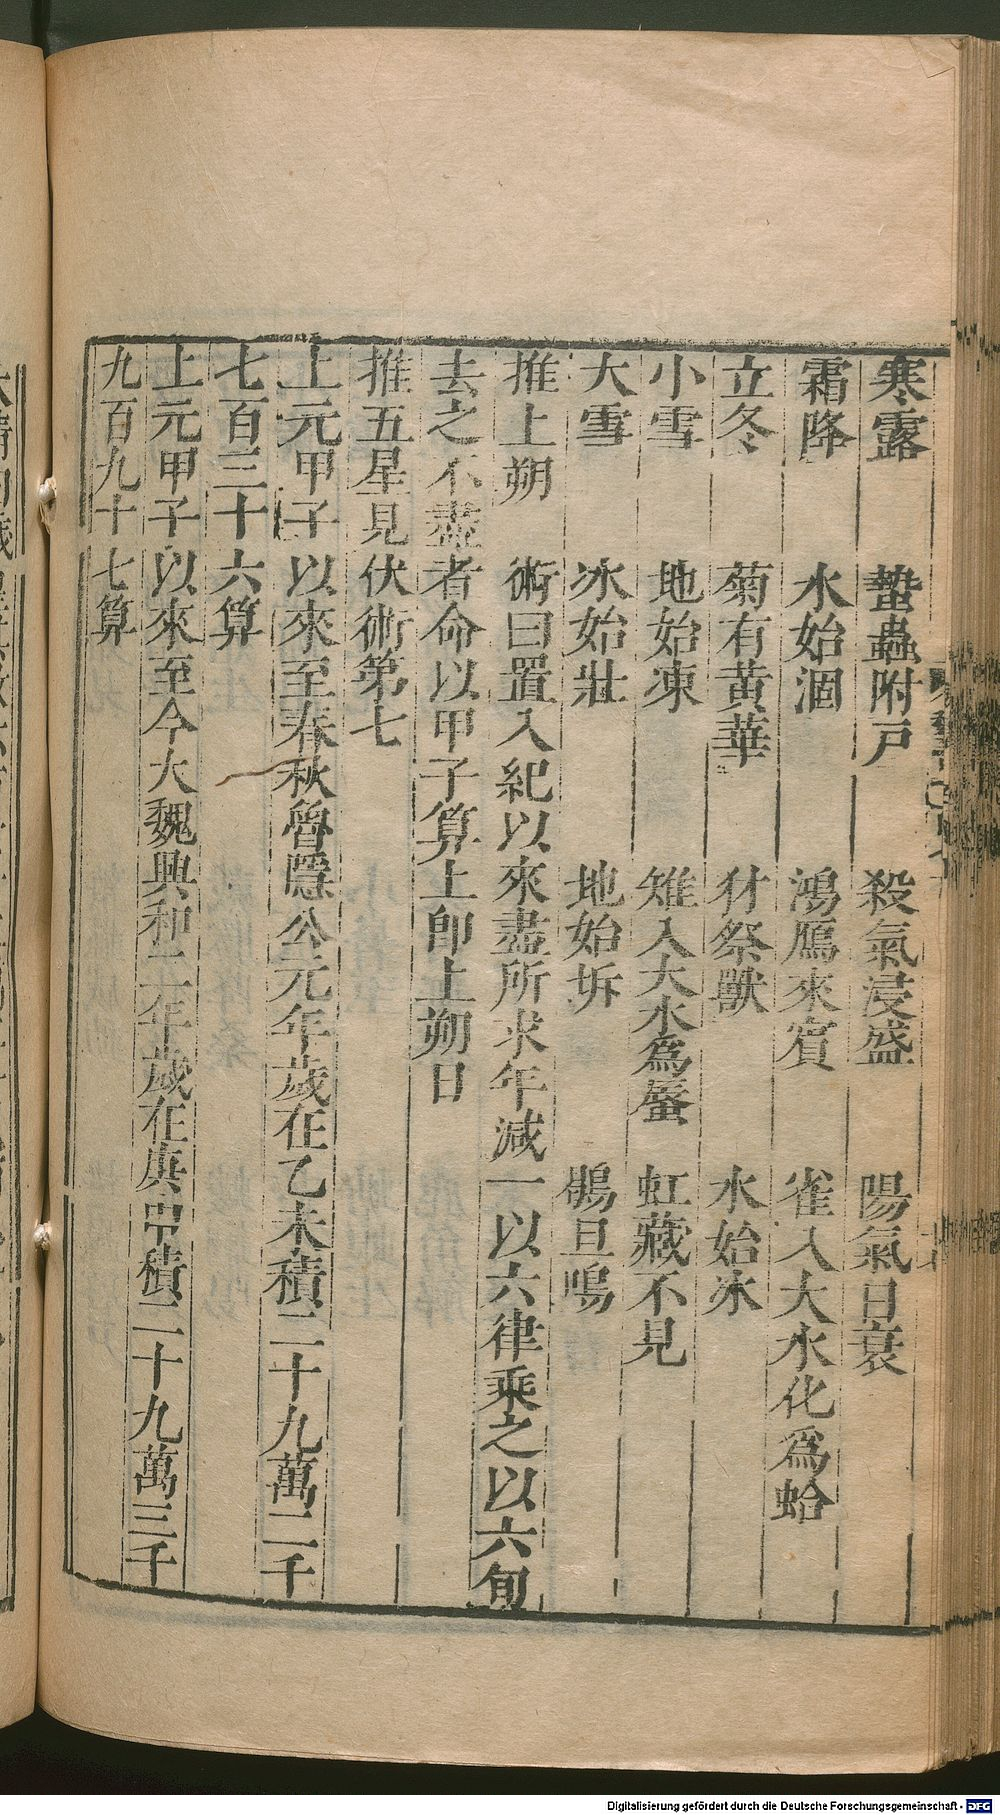 寒露　蟄蟲附戸　殺氣浸盛　陽氣日衰
霜降　水始涸　鴻鴈來賓　雀入大水化爲蛤
立冬　菊有黄華　豺祭獸　水始冰
小雪　地始凍　雉入大水爲蜃　虹藏不見
大雪　冰始壯　地始坼　鶡旦鳴
推上朔　術曰置入紀以來盡所求年減一以六律乘之以六旬
去之不盡者命以甲子算上卽上朔日
推五星見伏術第七
上元甲子以來至春秋魯隱公元年歲在乙未積二十九萬二千
七百三十六算
上元甲子以來至今大魏興和二年歲在庚申積二十九萬三千
九百九十七算
Digitalisierung gefördert durch die Deutsche Forschungsgemeinschaft - DFG